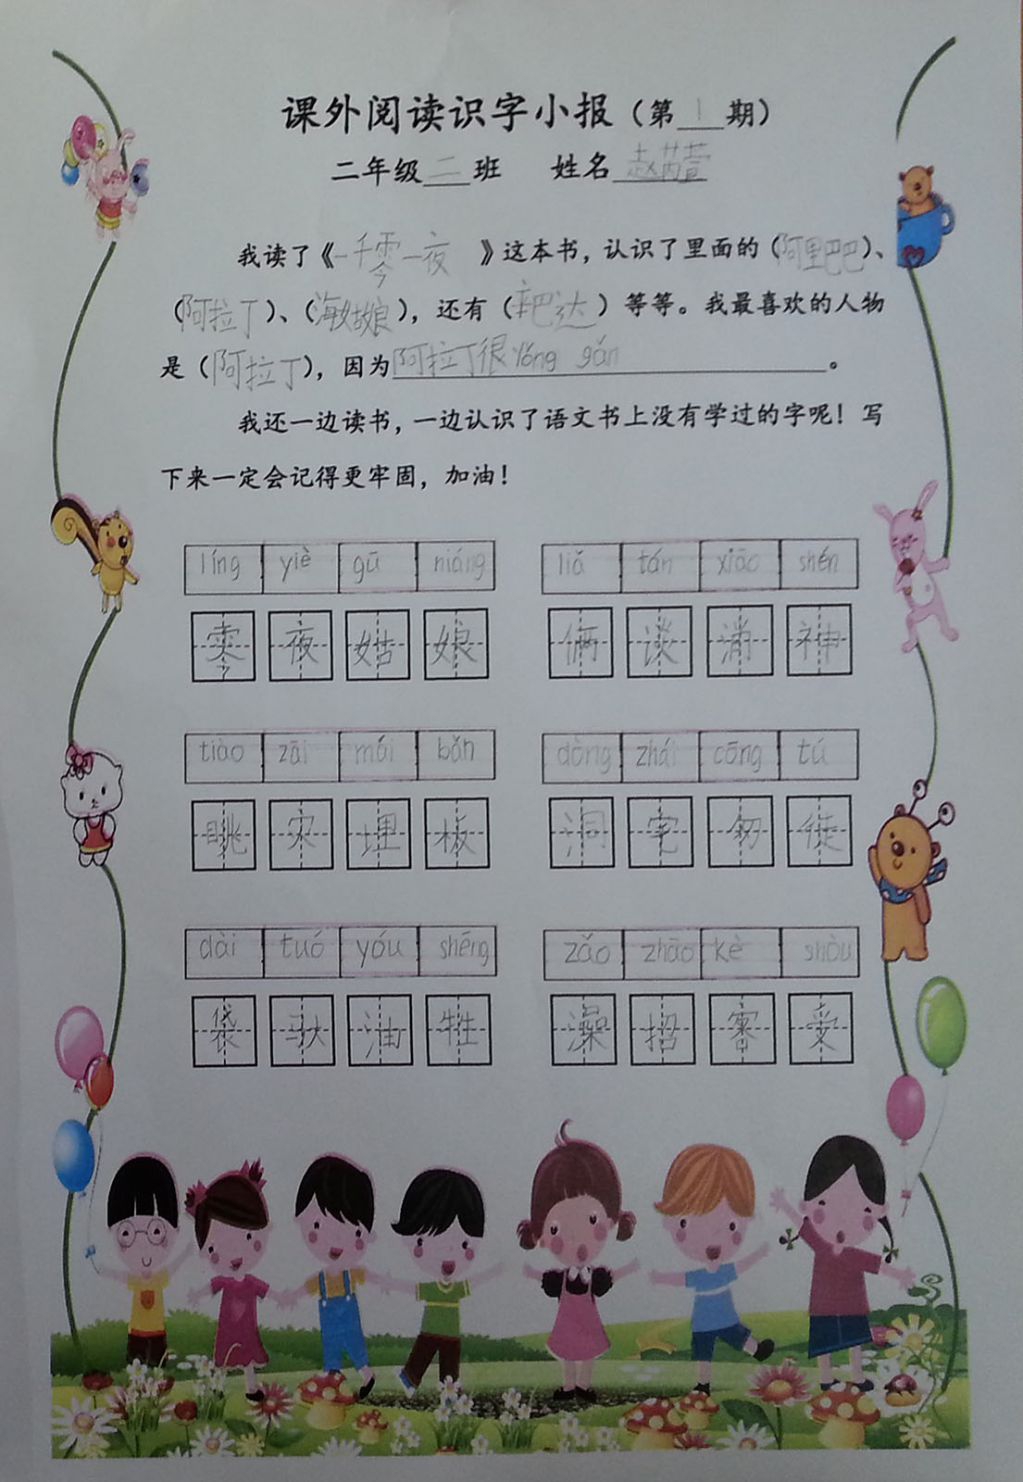 课外阅读识字小报（第1期）
二年级二班 姓名赵芮萱
我读了《一千零一夜》这本书，认识了里面的（阿里巴巴）、
（阿拉丁）、（海姑娘），还有（辛巴达）等等。我最喜欢的人物
是（阿拉丁），因为阿拉丁很yǒng gǎn。
我还一边读书，一边认识了语文书上没有学过的字呢！写
下来一定会记得更牢固，加油！
líng yiè gū niáng liǎ tán xiāo shén
零 夜 姑 娘 俩 谈 消 神
tiào zāi mái bǎn dòng zhái cōng tú
眺 灾 埋 板 洞 宅 匆 徒
dài tuó yóu shēng zǎo zhāo kè shòu
袋 驮 油 牲 澡 招 客 受